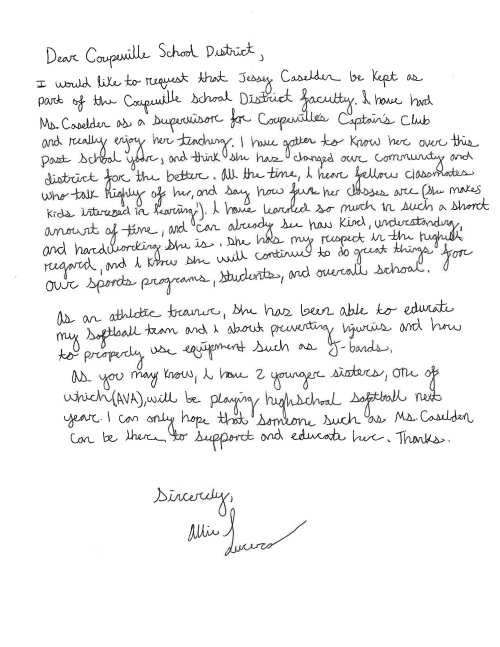 Dear Coupeville School District,
I would like to request that Jessey Caselden be kept as
part of the Coupeville School District faculty. I have had
Ms. Caselden as a supervisor for Coupeville's Captain's Club
and really enjoy her teaching. I have gotten to know her over this
past school year, and think she has changed our community and
district for the better. All the time, I hear fellow classmates
who talk highly of her, and say how fun her classes are (she makes
kids interested in learning!). I have learned so much in such a short
amount of time, and can already see how kind, understanding,
and hardworking she is. She has my respect in the highest
regard, and I know she will continue to do great things for
our sports programs, students, and overall school.
As an athletic trainer, she has been able to educate
my softball team and I about preventing injuries and how
to properly use equipment such as J-bands.
As you may know, I have 2 younger sisters, one of
which (AVA), will be playing highschool softball next
year. I can only hope that someone such as Ms. Caselden
can be there to support and educate her. Thanks.
Sincerely,
Allie Lucero